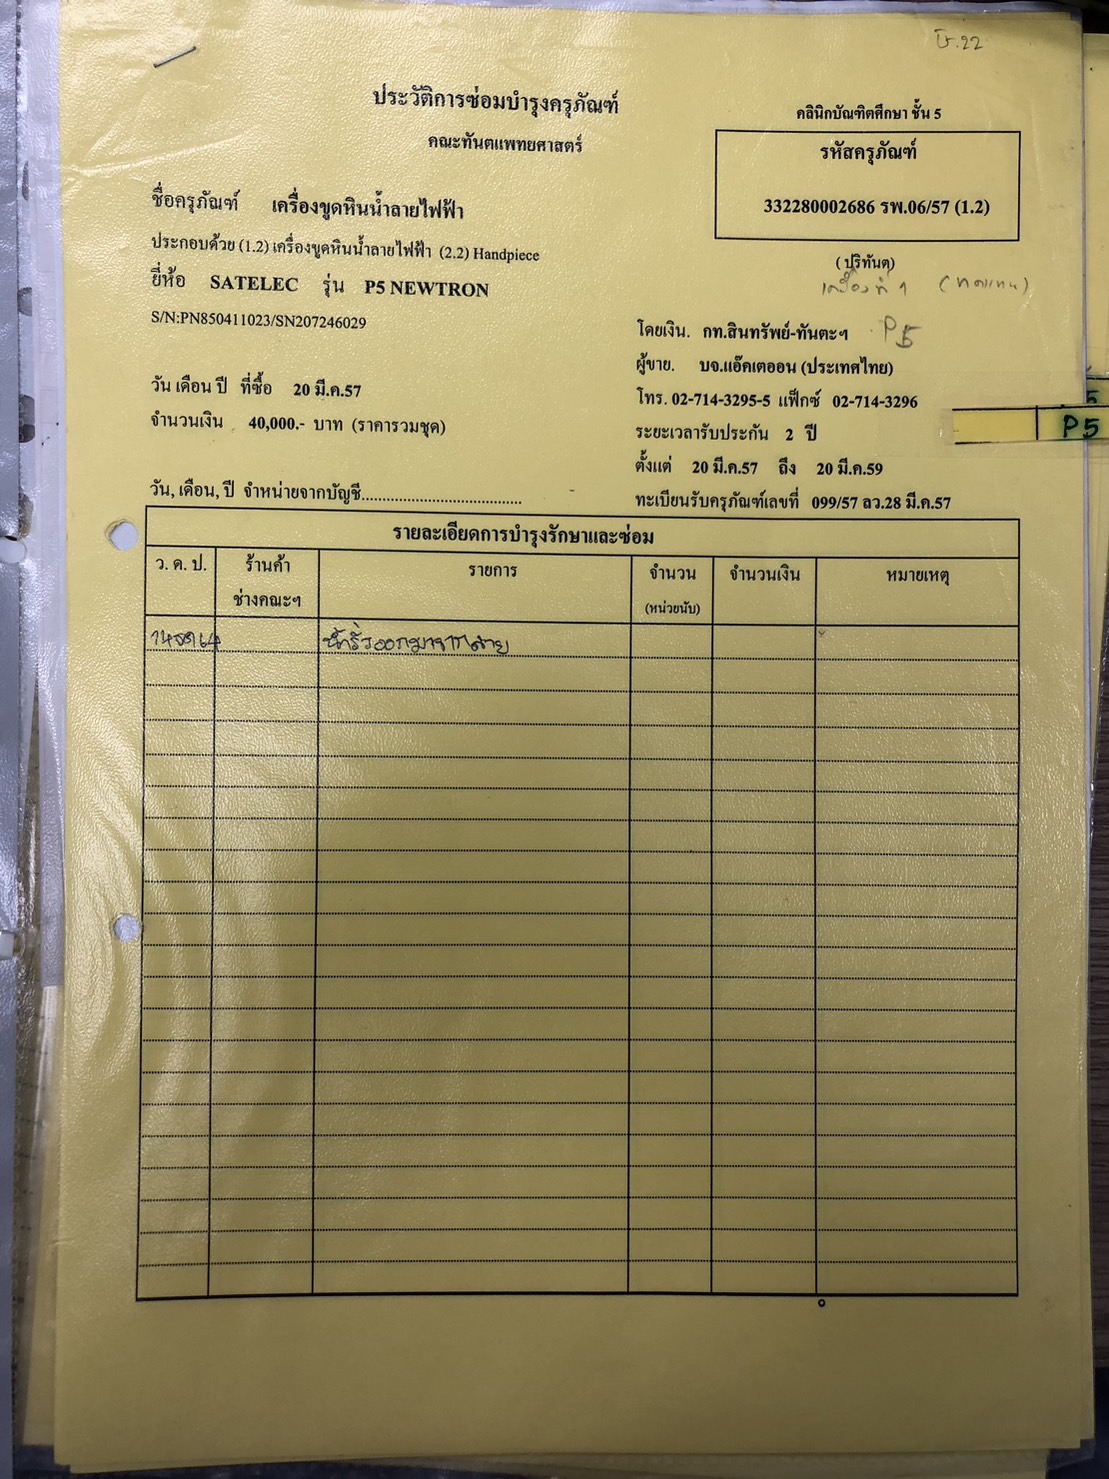 ประวัติการซ่อมบำรุงครุภัณฑ์
คณะทันตแพทยศาสตร์
คลินิกบัณฑิตศึกษา ชั้น 5
รหัสครุภัณฑ์
332280002686 รพ.06/57 (1.2)
(ปริทันต)
เครื่องที่ 1 (ทดแทน)
ชื่อครุภัณฑ์ เครื่องขูดหินน้ำลายไฟฟ้า
ประกอบด้วย (1.2) เครื่องขูดหินน้ำลายไฟฟ้า (2.2) Handpiece
ยี่ห้อ SATELEC รุ่น P5 NEWTRON
S/N:PN850411023/SN207246029
วัน เดือน ปี ที่ซื้อ 20 มี.ค.57
จำนวนเงิน 40,000.- บาท (ราคารวมชุด)
วัน, เดือน, ปี จำหน่ายจากบัญชี....................................
โดยเงิน. กท.สินทรัพย์-ทันตะฯ P5
ผู้ขาย. บจ.แอ๊คเตออน (ประเทศไทย)
โทร. 02-714-3295-5 แฟ็กซ์ 02-714-3296
ระยะเวลารับประกัน 2 ปี
ตั้งแต่ 20 มี.ค.57 ถึง 20 มี.ค.59
ทะเบียนรับครุภัณฑ์เลขที่ 099/57 ลว.28 มี.ค.57
P5
รายละเอียดการบำรุงรักษาและซ่อม
ว. ค. ป. ร้านค้า ช่างคณะฯ รายการ จำนวน (หน่วยนับ) จำนวนเงิน หมายเหตุ
น้ำรั่วออกมาจากสาย